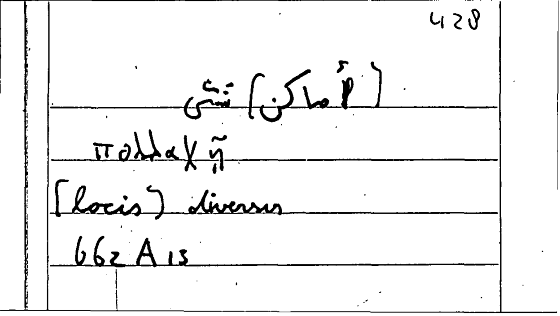 428
(أماكن) شتى
πολλαχῇ
(locis) diversis
662 A 15